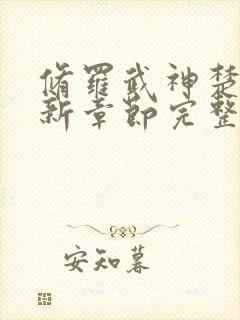 脩羅武神楚
新章節完整
安知暮